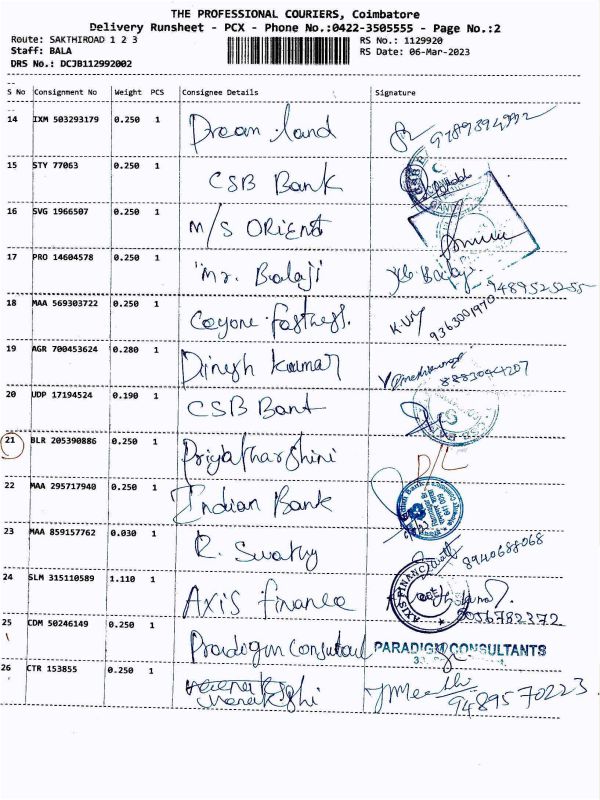 THE PROFESSIONAL COURIERS, Coimbatore
Delivery Runsheet - PCX - Phone No.:0422-3505555 - Page No.:2
Route: SAKTHIROAD 1 2 3 RS No.: 1129920
Staff: BALA RS Date: 06-Mar-2023
DRS No.: DCJB112992002
S No Consignment No Weight PCS Consignee Details Signature
14 IXM 503293179 0.250 1 Dream land
15 STY 77063 0.250 1 CSB Bank
16 SVG 1966507 0.250 1 M/S ORIENT
17 PRO 14604578 0.250 1 Mr. Balaji 9489525255
18 MAA 569303722 0.250 1 9363001970
19 AGR 700453624 0.280 1 Dinesh kumar 8883094207
20 UDP 17194524 0.190 1 CSB Bank
21 BLR 205390886 0.250 1 Priyatharshini D/L
22 MAA 295717940 0.250 1 Indian Bank
23 MAA 859157762 0.030 1 R. Swathy 8940688068
24 SLM 315110589 1.110 1 AXIS finance 8056782372
25 CDM 50246149 0.250 1 Paradigm Consultant PARADIGM CONSULTANTS
26 CTR 153855 0.250 1 9489570223